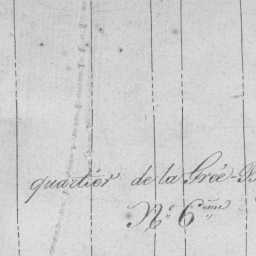 quartier de la Grée-B
N.º 6.ème